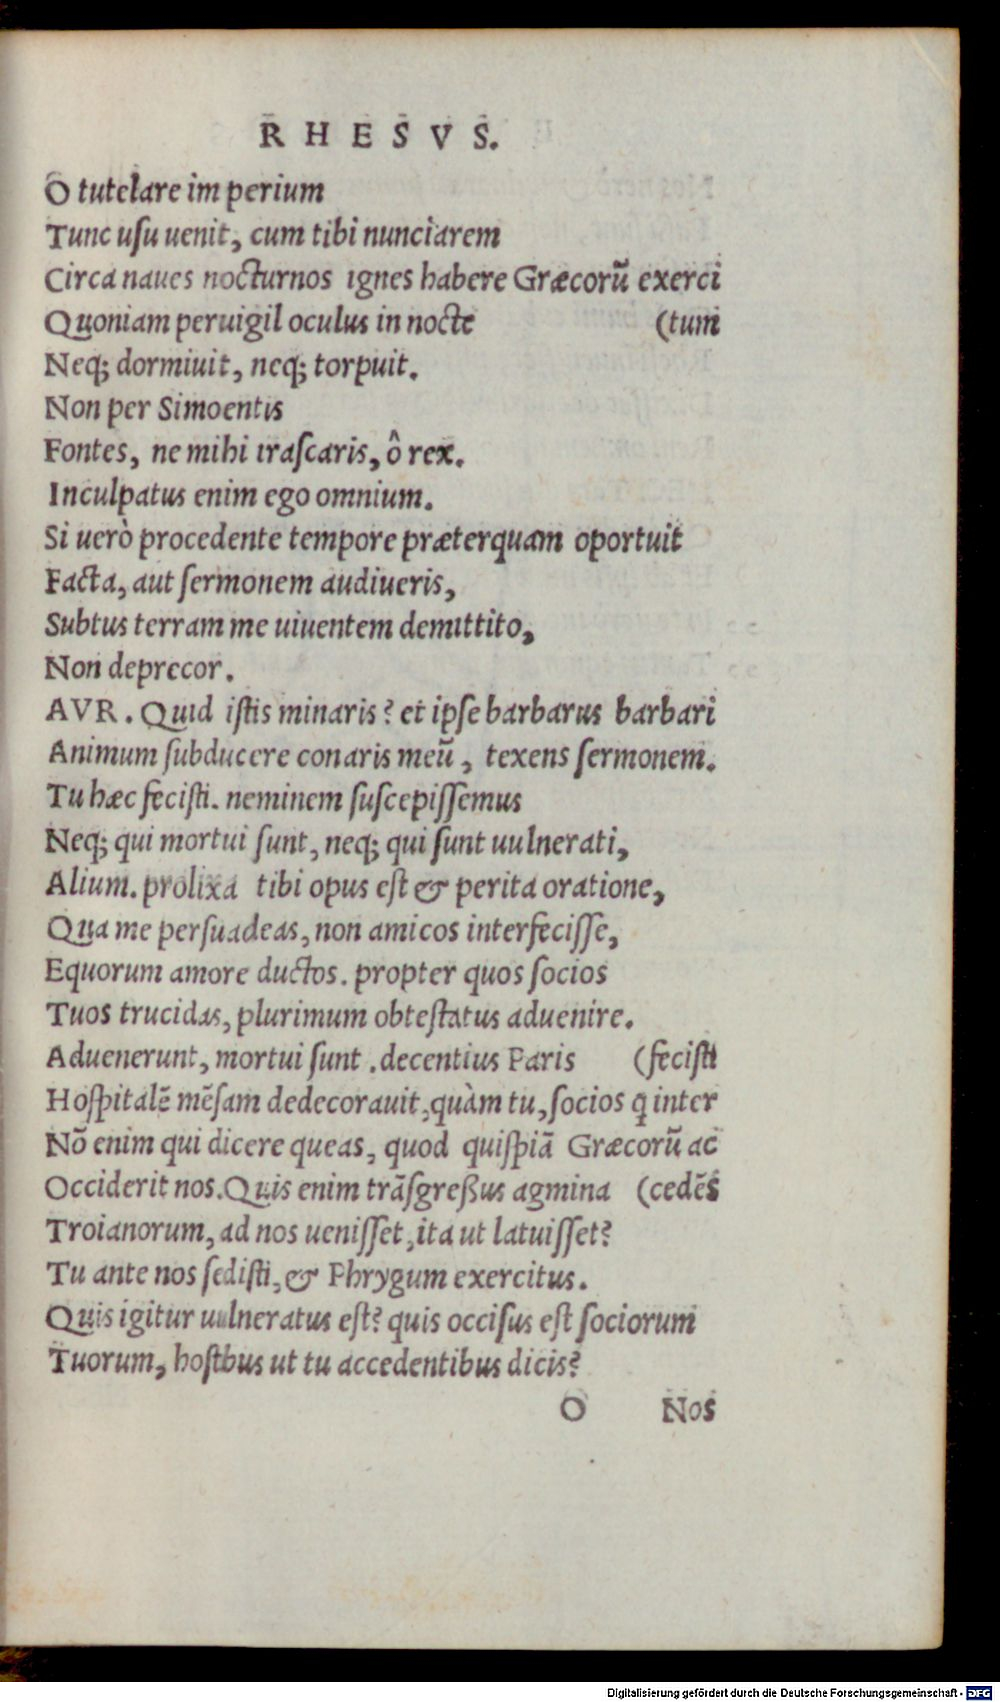 RHESVS.
O tutelare imperium
Tunc usu uenit, cum tibi nunciarem
Circa naues nocturnos ignes habere Græcorũ exerci
Quoniam peruigil oculus in nocte (tum
Neq; dormiuit, neq; torpuit.
Non per Simoentis
Fontes, ne mihi irascaris, ô rex.
Inculpatus enim ego omnium.
Si uerò procedente tempore præterquam oportuit
Facta, aut sermonem audiueris,
Subtus terram me uiuentem demittito,
Non deprecor.
AVR. Quid istis minaris? et ipse barbarus barbari
Animum subducere conaris meũ, texens sermonem.
Tu hæc fecisti. neminem suscepissemus
Neq; qui mortui sunt, neq; qui sunt uulnerati,
Alium. prolixa tibi opus est & perita oratione,
Qua me persuadeas, non amicos interfecisse,
Equorum amore ductos. propter quos socios
Tuos trucidas, plurimum obtestatus aduenire.
Aduenerunt, mortui sunt. decentius Paris (fecisti
Hospitalẽ mẽsam dedecorauit, quàm tu, socios q inter
Nõ enim qui dicere queas, quod quispiã Græcorũ ac
Occiderit nos. Quis enim trãsgreßus agmina (cedẽs
Troianorum, ad nos uenisset, ita ut latuisset?
Tu ante nos sedisti, & Phrygum exercitus.
Quis igitur uulneratus est? quis occisus est sociorum
Tuorum, hostbus ut tu accedentibus dicis?
O Nos
Digitalisierung gefördert durch die Deutsche Forschungsgemeinschaft - DFG